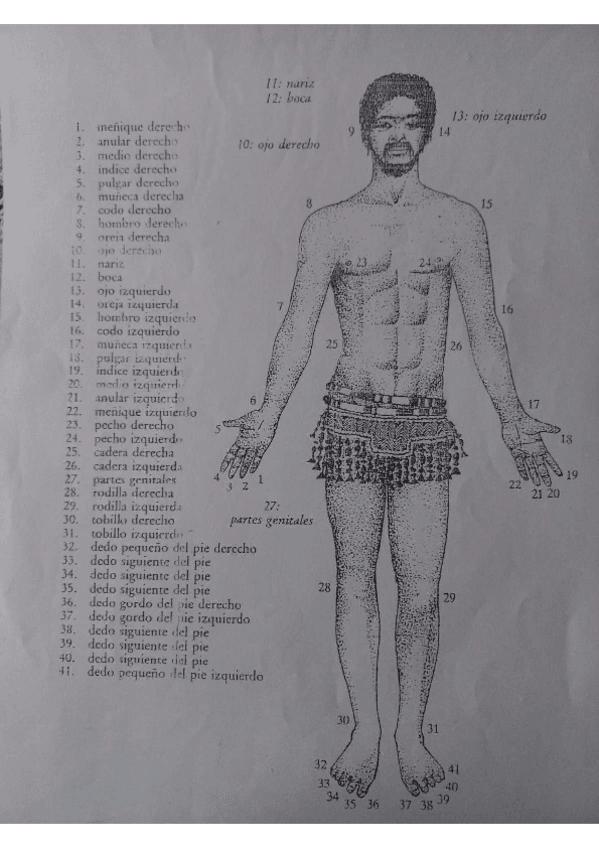 11: nariz
12: boca
13: ojo izquierdo
9
14
10: ojo derecho
1. meñique derecho
2. anular derecho
3. medio derecho
4. índice derecho
5. pulgar derecho
6. muñeca derecha
7. codo derecho
8. hombro derecho
9. oreja derecha
10. ojo derecho
11. nariz
12. boca
13. ojo izquierdo
14. oreja izquierda
15. hombro izquierdo
16. codo izquierdo
17. muñeca izquierda
18. pulgar izquierdo
19. índice izquierdo
20. medio izquierdo
21. anular izquierdo
22. meñique izquierdo
23. pecho derecho
24. pecho izquierdo
25. cadera derecha
26. cadera izquierda
27. partes genitales
28. rodilla derecha
29. rodilla izquierda
30. tobillo derecho
31. tobillo izquierdo
32. dedo pequeño del pie derecho
33. dedo siguiente del pie
34. dedo siguiente del pie
35. dedo siguiente del pie
36. dedo gordo del pie derecho
37. dedo gordo del pie izquierdo
38. dedo siguiente del pie
39. dedo siguiente del pie
40. dedo siguiente del pie
41. dedo pequeño del pie izquierdo
8
15
23
24
7
16
25
26
6
17
5
18
4
3
2
1
22
21
20
19
27:
partes genitales
28
29
30
31
32
33
34
35
36
37
38
39
40
41